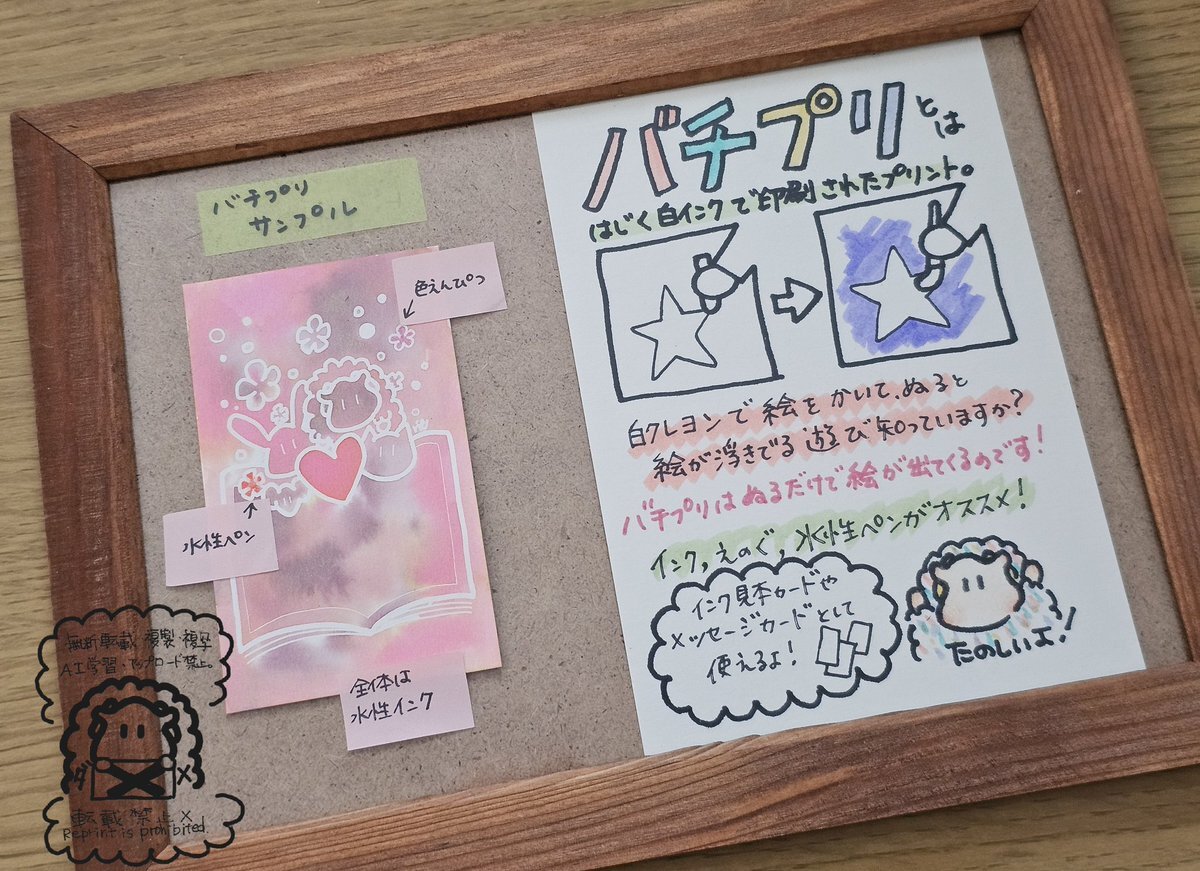 バチプリ
サンプル
色えんぴつ
水性ペン
全体は
水性インク
バチプリとは
はじく白インクで印刷されたプリント。
白クレヨンで絵をかいて、ぬると
絵が浮きでる遊び知っていますか?
バチプリはぬるだけで絵が出てくるのです!
インク,えのぐ,水性ペンがオススメ!
インク見本カードや
メッセージカードとして
使えるよ!
たのしいよ!
無断転載・複製・複写
AI学習・アップロード禁止。
ダメ
転載禁止×
Reprint is prohibited.